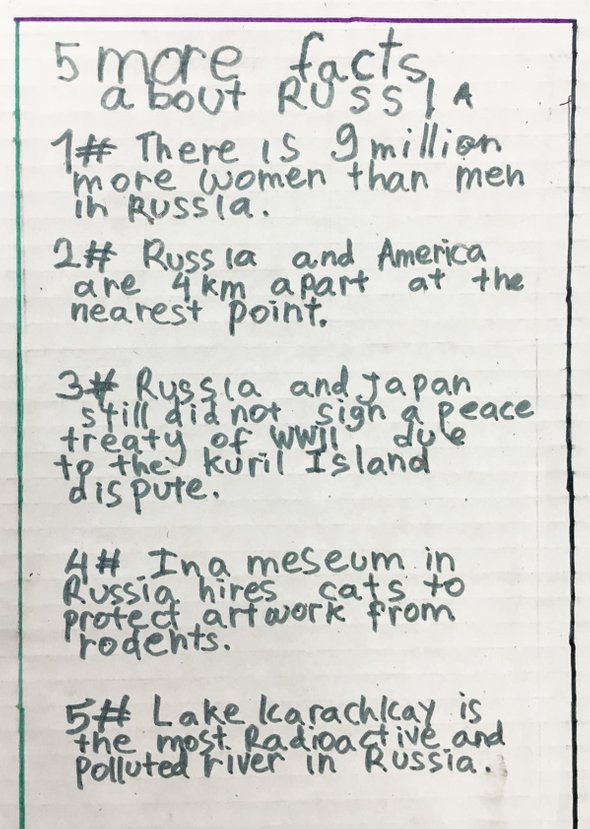 5 more facts
about RUSSIA
1# There is 9 million
more women than men
in Russia.
2# Russia and America
are 4 km apart at the
nearest point.
3# Russia and Japan
still did not sign a peace
treaty of WWII due
to the Kuril Island
dispute.
4# In a meseum in
Russia hires cats to
protect artwork from
rodents.
5# Lake Karachkay is
the most Radioactive and
polluted river in Russia.